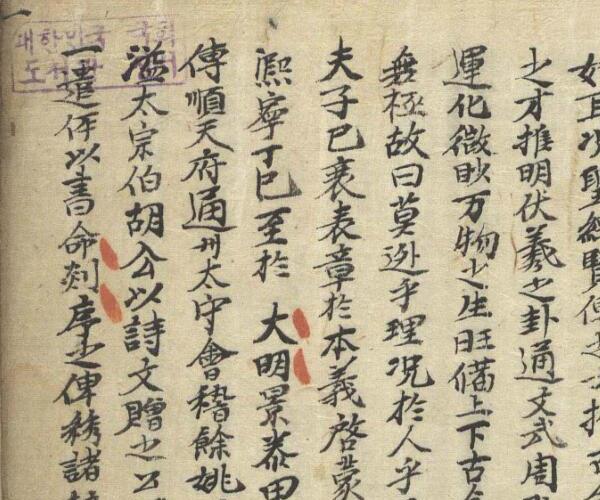 之才推明伏羲之卦通文武周
運化微眇万物之生旺備上下古
無極故曰莫逊乎理况於人乎
夫子已衰表章於本義啓蒙
熈寧丁巳至於 大明景泰
傳順天府通州太守會稽餘姚
溢太宗伯胡公以詩文贈之公
一遣伻以書命剡序之俾秀諸
대한민국 국회
도서관